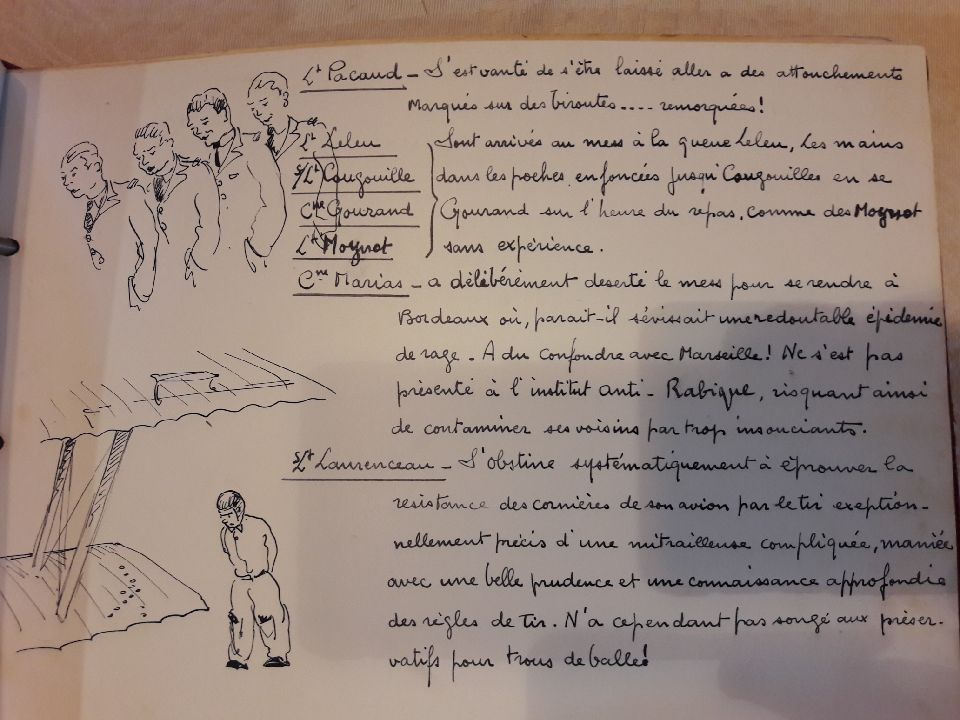 Lt Pacaud - S'est vanté de s'être laissé aller a des attouchements
Marqués sur des biroutes.... remorquées!
Lt Leleu
S/Lt Cougouille
Cne Gourand
Lt Moynot
Sont arrivés au mess à la queue Leleu, Les mains
dans les poches enfoncées jusqu'Cougouilles en se
Gourand sur l'heure du repas, comme des Moynot
sans expérience.
Cne Marias - a délibérément deserté le mess pour se rendre à
Bordeaux où, parait-il sévissait une redoutable épidemie
de rage - A du confondre avec Marseille! Ne s'est pas
présenté à l'institut anti-Rabique, risquant ainsi
de contaminer ses voisins par trop insouciants.
S/Lt Laurenceau - S'obstine systématiquement à éprouver la
resistance des cornières de son avion par le tir exeption-
nellement précis d'une mitrailleuse compliquée, maniée
avec une belle prudence et une connaissance approfondie
des règles de tir. N'a cependant pas songé aux préser-
vatifs pour trous de balle!